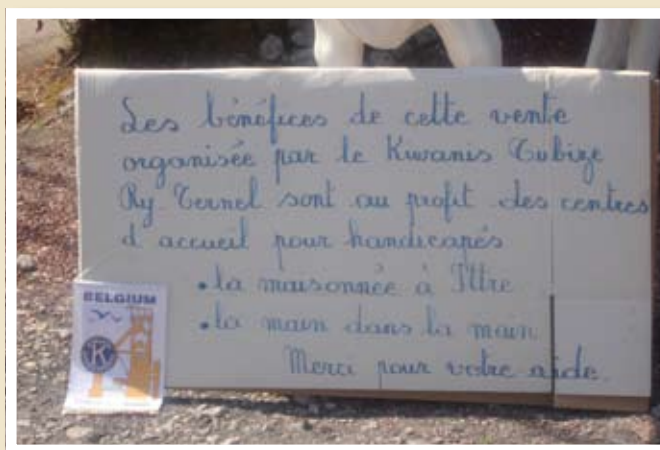 Les bénéfices de cette vente
organisée par le Kiwanis Tubize
Ry Ternel sont au profit des centres
d'accueil pour handicapés
• la maisonnée à Ittre
• la main dans la main
Merci pour votre aide.
BELGIUM
K